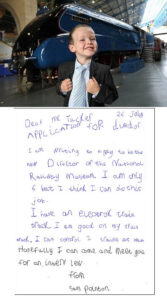 Dear Mr Tucker 26 July
APPLICATION FOR director
I am writing to apply to be the
new Director of the National
Railway Museum. I am only
6 but I think I can do this
job.
I have an electrick train
track. I am good on my train
track. I can control 2 trains at once
Hopefully I can come and meet you
for an
From
Sam Pointon